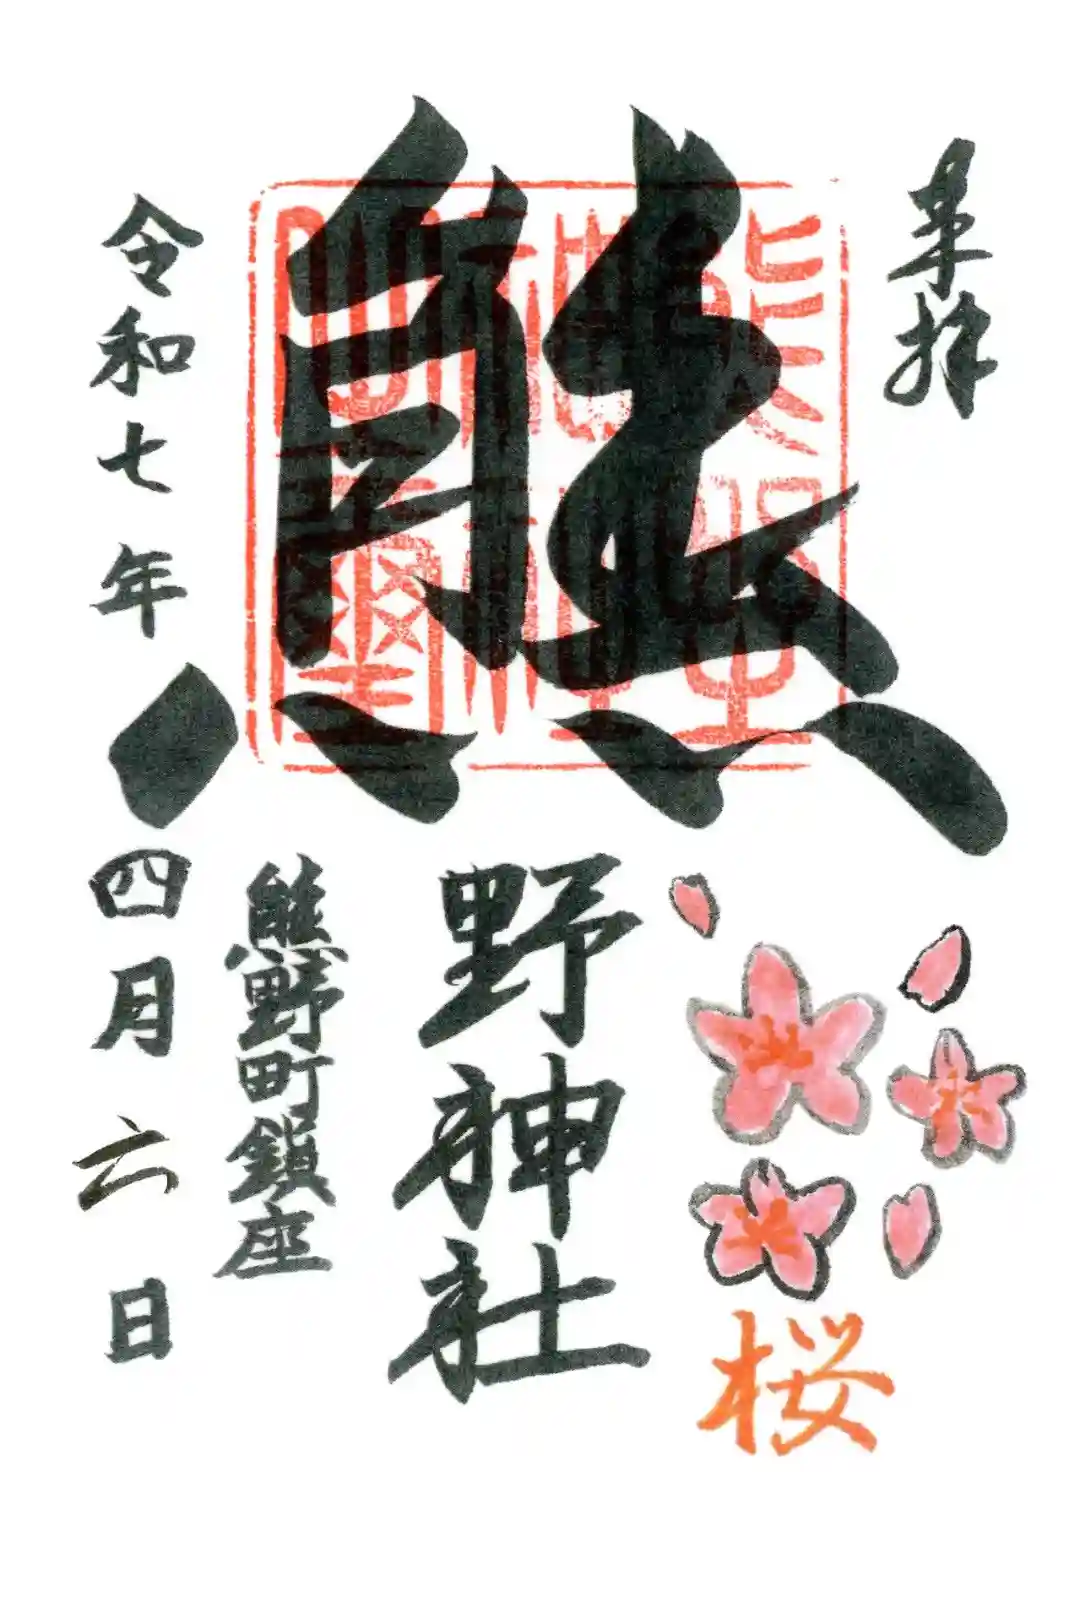 奉拝
桜
熊野神社
熊野町鎮座
令和七年四月六日